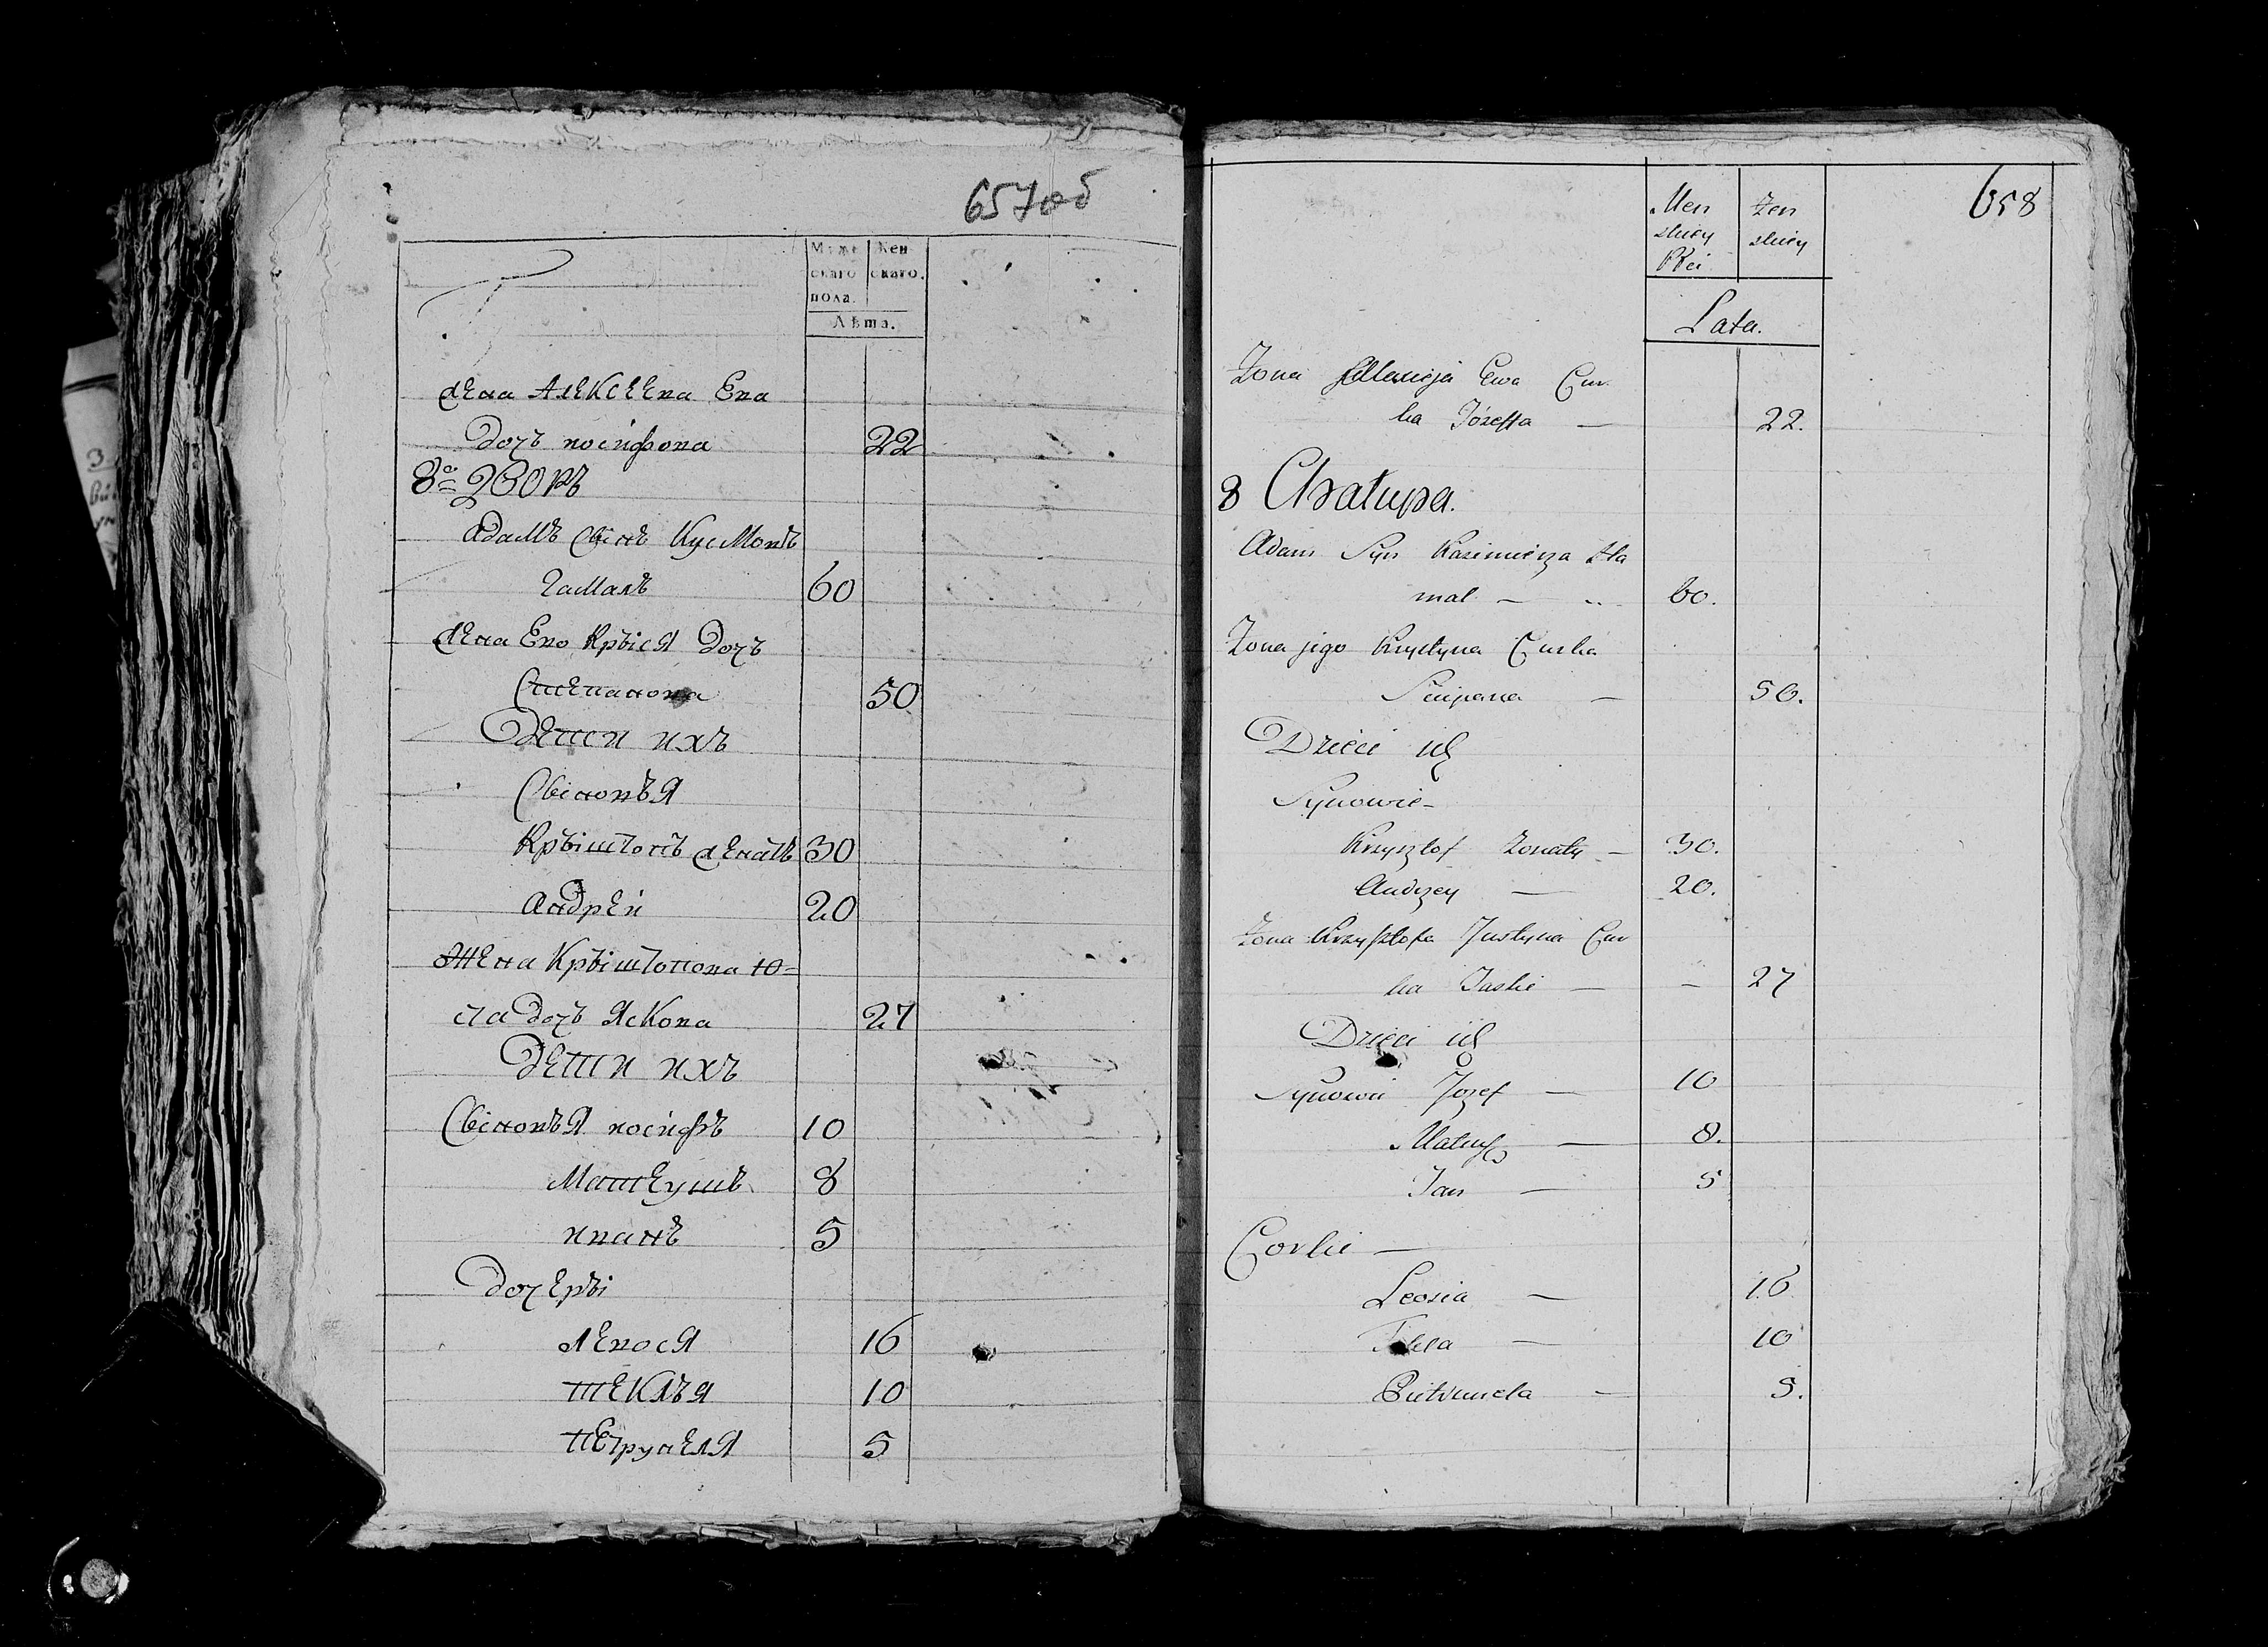 657об
Муже Жен
скаго скаго.
пола.
Лѣта.
жена Алексеева Ева
дочъ иосифова 22
8й дворъ
адамъ сынъ Кусмовъ
гамалъ 60
жена Ево Крыся дочъ
Степанова 50
Дети ихъ
Сыновья
Крыштопъ женатъ 30
андрей 20
Жена Крыштопова ю-
ста дочъ Яскова 27
Дети ихъ
Сыновья иосифъ 10
Матеушъ 8
иванъ 5
дочеры
левося 16
текля 10
петрунеля 5
658
Men Zen
skiey skiey
Płci
Lata.
Zona Alexieja Ewa Cur
ka Józeffa — 22.
8 Chałupa.
Adam Syn Kazimierza Ha
mal — 60.
Zona jego Krystyna Curka
Sciepana — 50.
Dzieci ich
Synowie —
Krzysztof Zonaty — 30.
Andrzey — 20.
Zona Krzysztofa Justyna Cur
ka Jaśki — — 27
Dzieci ich
Synowie Jozef — 10
Mateusz — 8.
Jan — 5
Corki —
Leosia — 16
Tekla — 10
Pietrunela — 5.